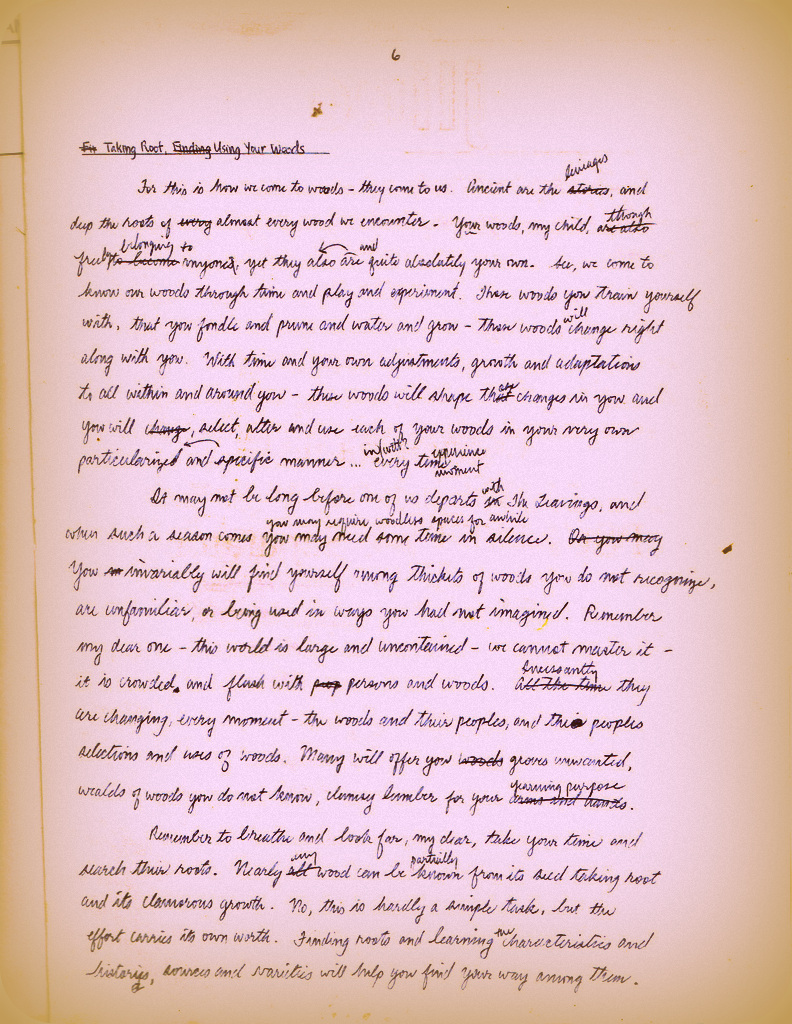 6
Fit Taking Root, Finding Using Your Woods
lineages
For this is how we come to woods – they come to us. Ancient are the stories, and
deep the roots of every almost every wood we encounter. Your woods, my child, are also
though
belonging to and
freely to become anyones, yet they also are quite absolutely your own. See, we come to
know our woods through time and play and experiment. These woods you train yourself
will
with, that you fondle and prune and water and grow – these woods change right
along with you. With time and your own adjustments, growth and adaptations
are
to all within and around you – these woods will shape that changes in you and
you will change, select, alter and use each of your woods in your very own
in/with experience
particularized and specific manner... every time
moment
with
It may not be long before one of us departs in The Leavings, and
you may require woodless spaces for awhile
when such a season comes you may need some time in silence. Or you may
You invariably will find yourself among thickets of woods you do not recognize,
are unfamiliar, or being used in ways you had not imagined. Remember
my dear one – this world is large and uncontained – we cannot master it –
Incessantly
it is crowded, and flush with peop persons and woods. All the time they
are changing, every moment – the woods and their peoples, and the peoples
selections and uses of woods. Many will offer you woods groves unwanted,
yearning purpose
wealds of woods you do not know, clumsy lumber for your arms and hands.
Remember to breathe and look far, my dear, take your time and
any partially
search their roots. Nearly all wood can be known from its seed taking root
and its clamorous growth. No, this is hardly a simple task, but the
the
effort carries its own worth. Finding roots and learning characteristics and
histories, sources and varieties will help you find your way among them.